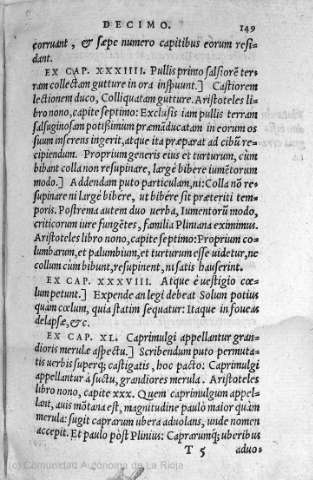 DECIMO. 149
corruant, & sæpe numero capitibus eorum resi-
dant.
EX CAP. XXXIIII. Pullis primo salsiorē ter-
ram collectam gutture in ora inspuunt.] Castiorem
lectionem duco, Colliquatam gutture. Aristoteles li-
bro nono, capite septimo: Exclusis iam pullis terram
salsuginosam potissimum præmāducatam in eorum os
suum inserens ingerit, atque ita præparat ad cibū re-
cipiendum. Proprium generis eius et turturum, cùm
bibant colla non resupinare, largè bibere iumētorum
modo.] Addendum puto particulam, ni: Colla nō re-
supinare ni largè bibére, ut bibére sit præteriti tem-
poris. Postrema autem duo uerba, Iumentorū modo,
criticorum iure fungētes, familia Pliniana eximimus.
Aristoteles libro nono, capite septimo: Proprium co-
lumbarum, et palumbium, et turturum esse uidetur, ne
collum cùm bibunt, resupinent, ni satis hauserint.
EX CAP. XXXVIII. Atque è uestigio cœ-
lum petunt.] Expende an legi debeat Solum potius
quàm cœlum, quia statim sequatur: Itaque in foueas
delapsæ, &c.
EX CAP. XL. Caprimulgi appellantur gran-
dioris merulæ aspectu.] Scribendum puto permuta-
tis uerbis superq; castigatis, hoc pacto: Caprimulgi
appellantur à suctu, grandiores merula. Aristoteles
libro nono, capite xxx. Quem caprimulgum appel-
lant, auis mōtana est, magnitudine paulò maior quàm
merula: sugit caprarum ubera aduolans, unde nomen
accepit. Et paulò pòst Plinius: Caprarumq; uberibus
T 5 aduo-
(c) Comunidad Autónoma de La Rioja